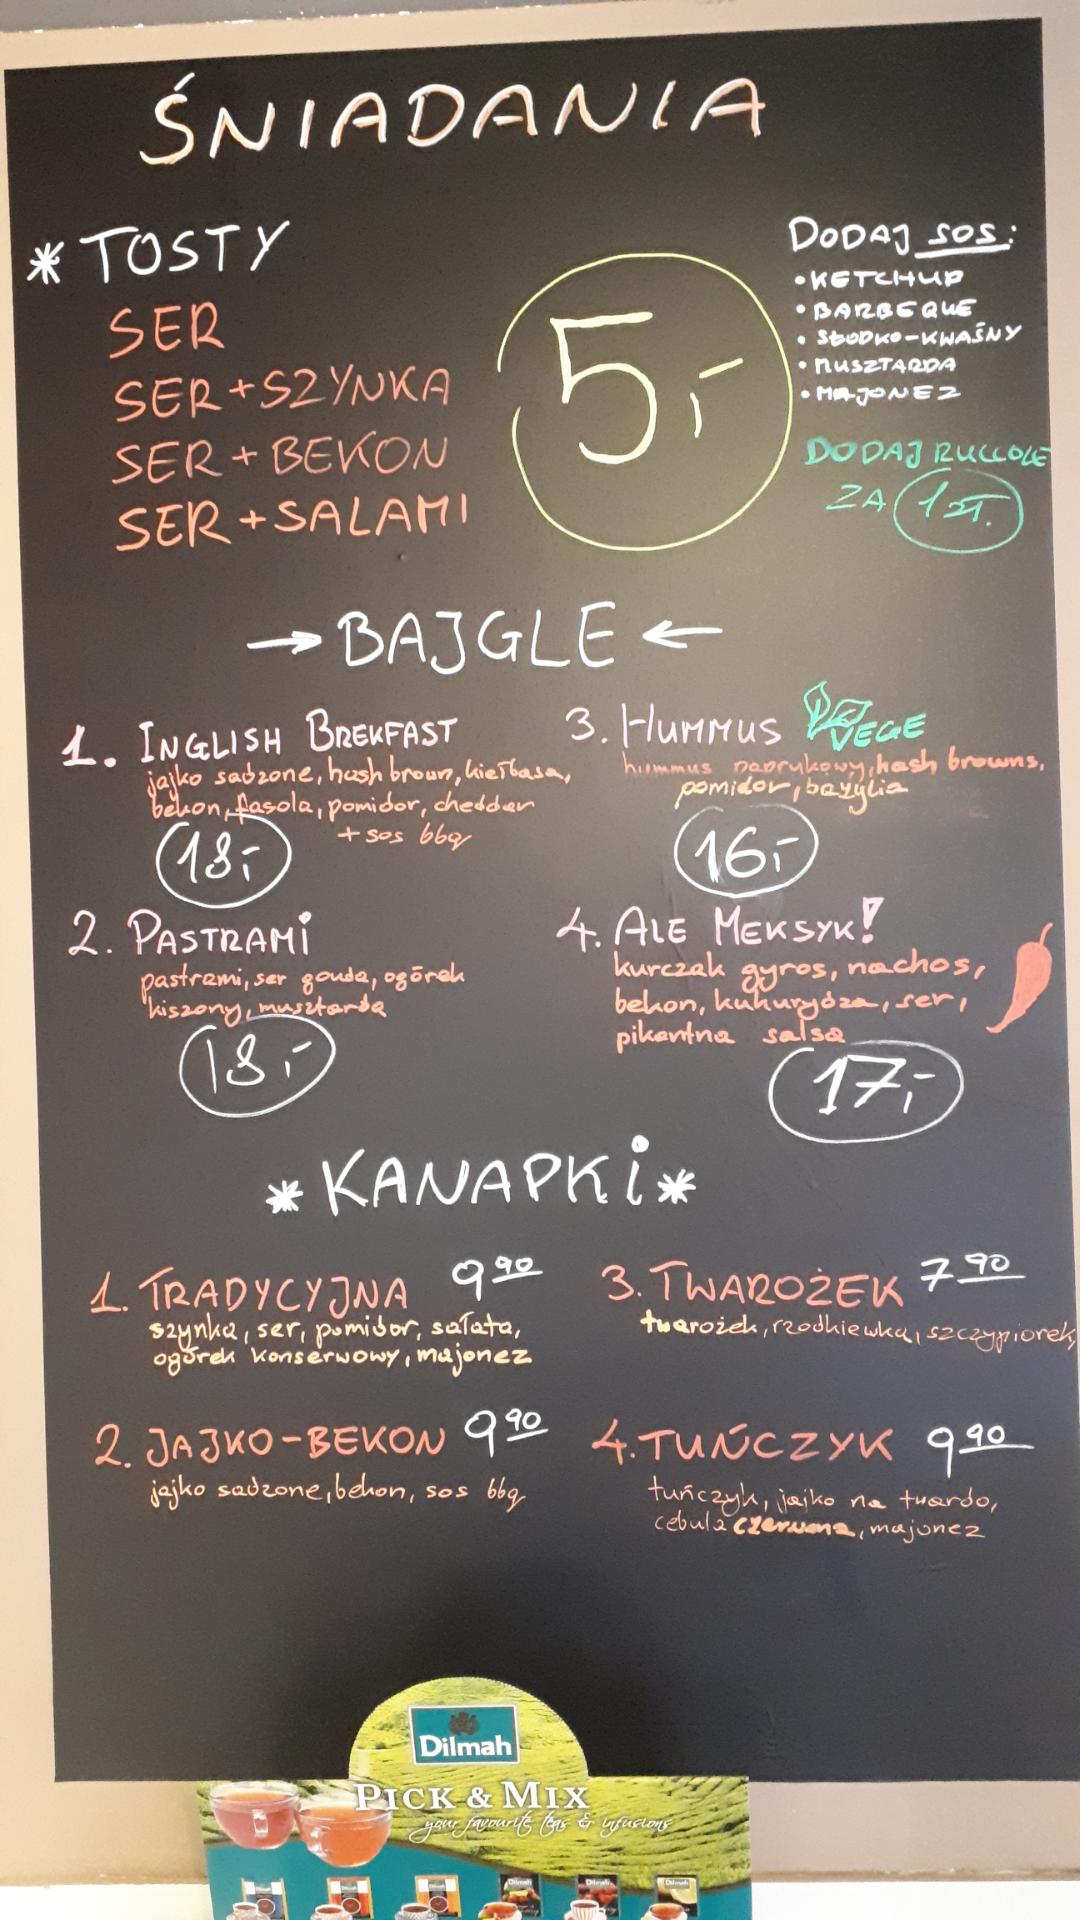 ŚNIADANIA
* TOSTY
SER
SER + SZYNKA
SER + BEKON
SER + SALAMI
5,-
DODAJ SOS:
• KETCHUP
• BARBEQUE
• SŁODKO-KWAŚNY
• MUSZTARDA
• MAJONEZ
DODAJ RUCCOLE
ZA 1 ZŁ.
→ BAJGLE ←
1. INGLISH BREKFAST
jajko sadzone, hash broun, kiełbasa,
bekon, fasola, pomidor, cheddar
+ sos bbq
18,-
2. PASTRAMI
pastrami, ser gouda, ogórek
kiszony, musztarda
18,-
3. HUMMUS VEGE
hummus paprykowy, hash browns,
pomidor, bazylia
16,-
4. ALE MEKSYK!
kurczak gyros, nachos,
bekon, kukurydza, ser,
pikantna salsa
17,-
* KANAPKI *
1. TRADYCYJNA 9 90
szynka, ser, pomidor, sałata,
ogórek konserwowy, majonez
2. JAJKO-BEKON 9 90
jajko sadzone, bekon, sos bbq
3. TWAROŻEK 7 90
twarożek, rzodkiewka, szczypiorek,
4. TUŃCZYK 9 90
tuńczyk, jajko na twardo,
cebula czerwona, majonez
Dilmah
PICK & MIX
your favourite teas & infusions
Dilmah
Dilmah
Dilmah
Dilmah
Dilmah
Dilmah